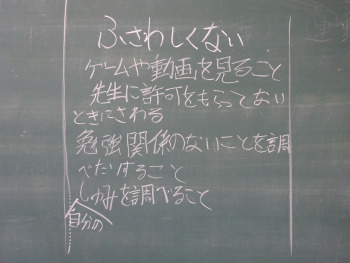 ふさわしくない
ゲームや動画を見ること
先生に許可をもらってない
ときにさわる
勉強関係のないことを調
べたりすること
自分のしゅみを調べること